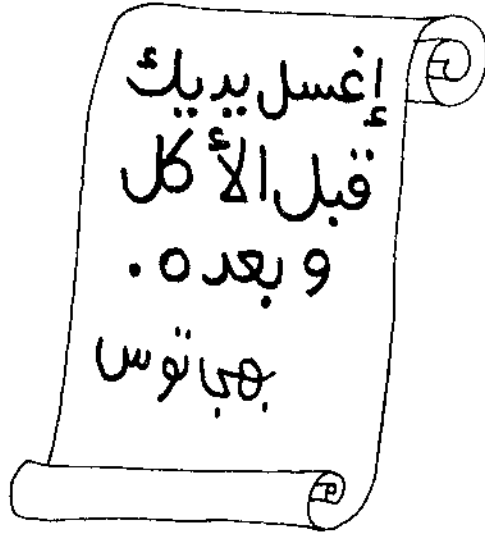 إغسل يديك
قبل الأكل
وبعده.
توس